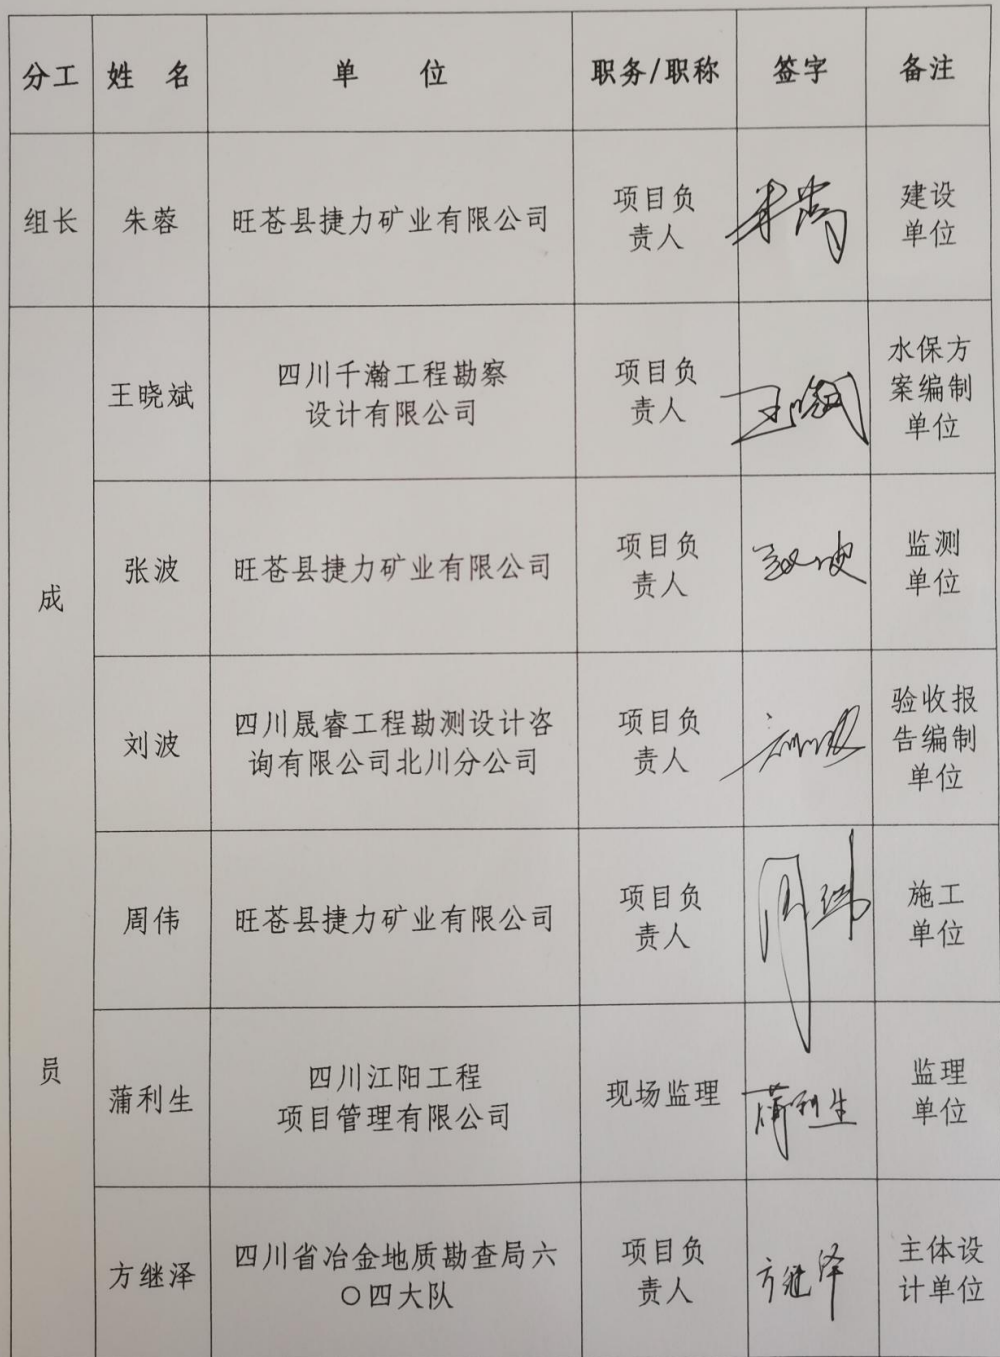 分工 姓 名 单 位 职务/职称 签字 备注
组长 朱蓉 旺苍县捷力矿业有限公司 项目负
责人 朱蓉 建设
单位
成
员
王晓斌 四川千瀚工程勘察
设计有限公司 项目负
责人 王晓斌 水保方
案编制
单位
张波 旺苍县捷力矿业有限公司 项目负
责人 张波 监测
单位
刘波 四川晟睿工程勘测设计咨
询有限公司北川分公司 项目负
责人 刘波 验收报
告编制
单位
周伟 旺苍县捷力矿业有限公司 项目负
责人 周伟 施工
单位
蒲利生 四川江阳工程
项目管理有限公司 现场监理 蒲利生 监理
单位
方继泽 四川省冶金地质勘查局六
〇四大队 项目负
责人 方继泽 主体设
计单位